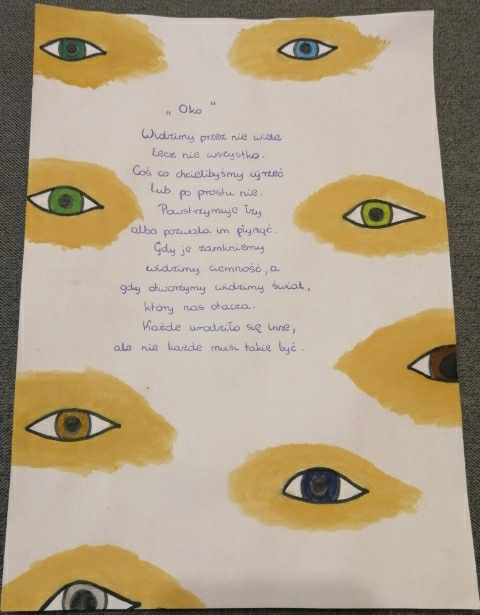 „ Oko "
Widzimy przez nie wiele
lecz nie wszystko.
Coś co chcielibyśmy ujrzeć
lub po prostu nie.
Powstrzymuje łzy
albo pozwala im płynąć.
Gdy je zamkniemy
widzimy ciemność, a
gdy otworzymy widzimy świat,
który nas otacza.
Każde urodziło się inne,
ale nie każde musi takie być.